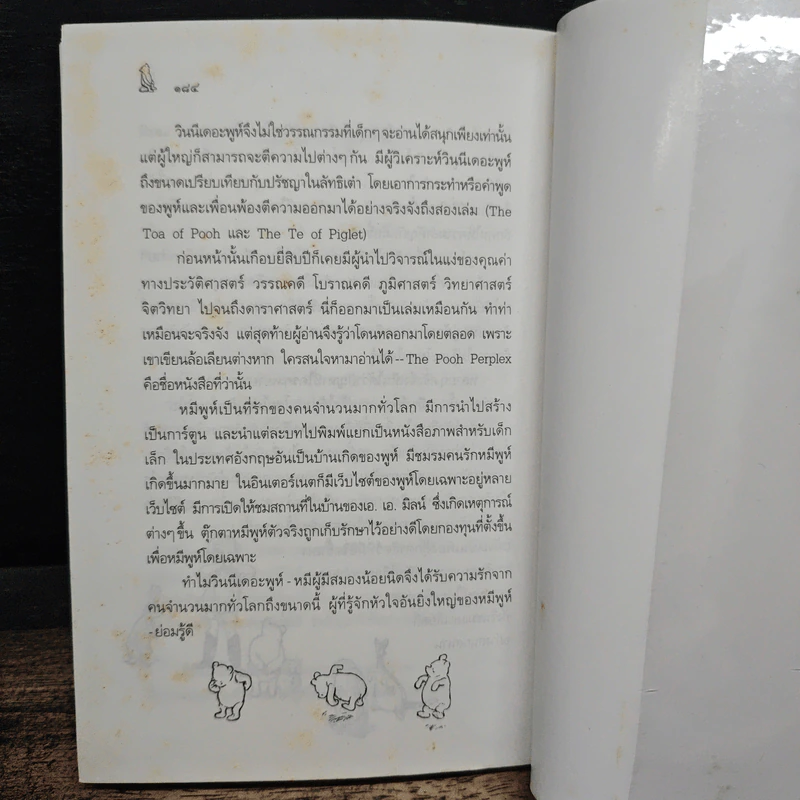 ๑๘๕
วินนีเดอะพูห์จึงไม่ใช่วรรณกรรมที่เด็กๆจะอ่านได้สนุกเพียงเท่านั้น
แต่ผู้ใหญ่ก็สามารถจะตีความไปต่างๆกัน มีผู้วิเคราะห์วินนีเดอะพูห์
ถึงขนาดเปรียบเทียบกับปรัชญาในลัทธิเต๋า โดยเอาการกระทำหรือคำพูด
ของพูห์และเพื่อนพ้องตีความออกมาได้อย่างจริงจังถึงสองเล่ม (The
Toa of Pooh และ The Te of Piglet)
ก่อนหน้านั้นเกือบยี่สิบปีก็เคยมีผู้นำไปวิจารณ์ในแง่ของคุณค่า
ทางประวัติศาสตร์ วรรณคดี โบราณคดี ภูมิศาสตร์ วิทยาศาสตร์
จิตวิทยา ไปจนถึงดาราศาสตร์ นี่ก็ออกมาเป็นเล่มเหมือนกัน ทำท่า
เหมือนจะจริงจัง แต่สุดท้ายผู้อ่านจึงรู้ว่าโดนหลอกมาโดยตลอด เพราะ
เขาเขียนล้อเลียนต่างหาก ใครสนใจหามาอ่านได้--The Pooh Perplex
คือชื่อหนังสือที่ว่านั้น
หมีพูห์เป็นที่รักของคนจำนวนมากทั่วโลก มีการนำไปสร้าง
เป็นการ์ตูน และนำแต่ละบทไปพิมพ์แยกเป็นหนังสือภาพสำหรับเด็ก
เล็ก ในประเทศอังกฤษอันเป็นบ้านเกิดของพูห์ มีชมรมคนรักหมีพูห์
เกิดขึ้นมากมาย ในอินเตอร์เนตก็มีเว็บไซต์ของพูห์โดยเฉพาะอยู่หลาย
เว็บไซต์ มีการเปิดให้ชมสถานที่ในบ้านของเอ. เอ. มิลน์ ซึ่งเกิดเหตุการณ์
ต่างๆขึ้น ตุ๊กตาหมีพูห์ตัวจริงถูกเก็บรักษาไว้อย่างดีโดยกองทุนที่ตั้งขึ้น
เพื่อหมีพูห์โดยเฉพาะ
ทำไมวินนีเดอะพูห์ - หมีผู้มีสมองน้อยนิดจึงได้รับความรักจาก
คนจำนวนมากทั่วโลกถึงขนาดนี้ ผู้ที่รู้จักหัวใจอันยิ่งใหญ่ของหมีพูห์
-ย่อมรู้ดี